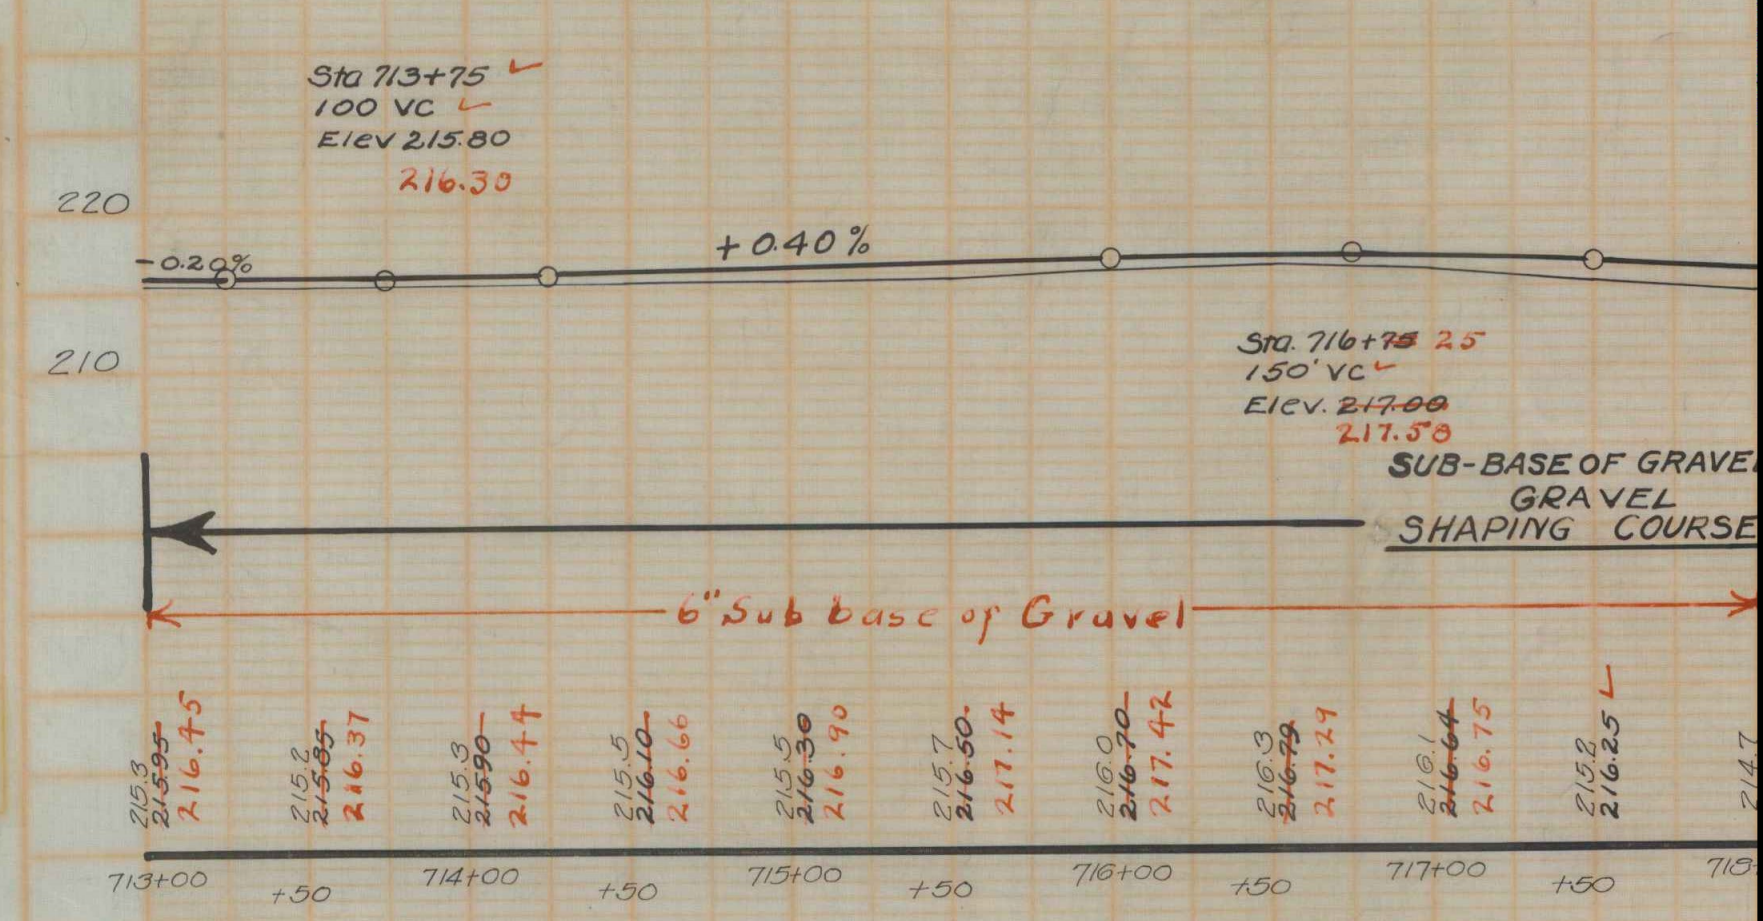 Sta 713+75 ✓
100 VC ✓
Elev 215.80
216.30
220
-0.20%
+0.40%
210
Sta. 716+75 25
150' VC ✓
Elev. 217.00
217.58
SUB-BASE OF GRAVEL
GRAVEL
SHAPING COURSE
6" Sub base of Gravel
215.3
215.95
216.45
215.2
215.85
216.37
215.3
215.90
216.44
215.5
216.10
216.66
215.5
216.30
216.90
215.7
216.50
217.14
216.0
216.70
217.42
216.3
216.79
217.29
216.1
216.64
216.75
215.2
216.25 ✓
214.7
713+00
+50
714+00
+50
715+00
+50
716+00
+50
717+00
+50
718